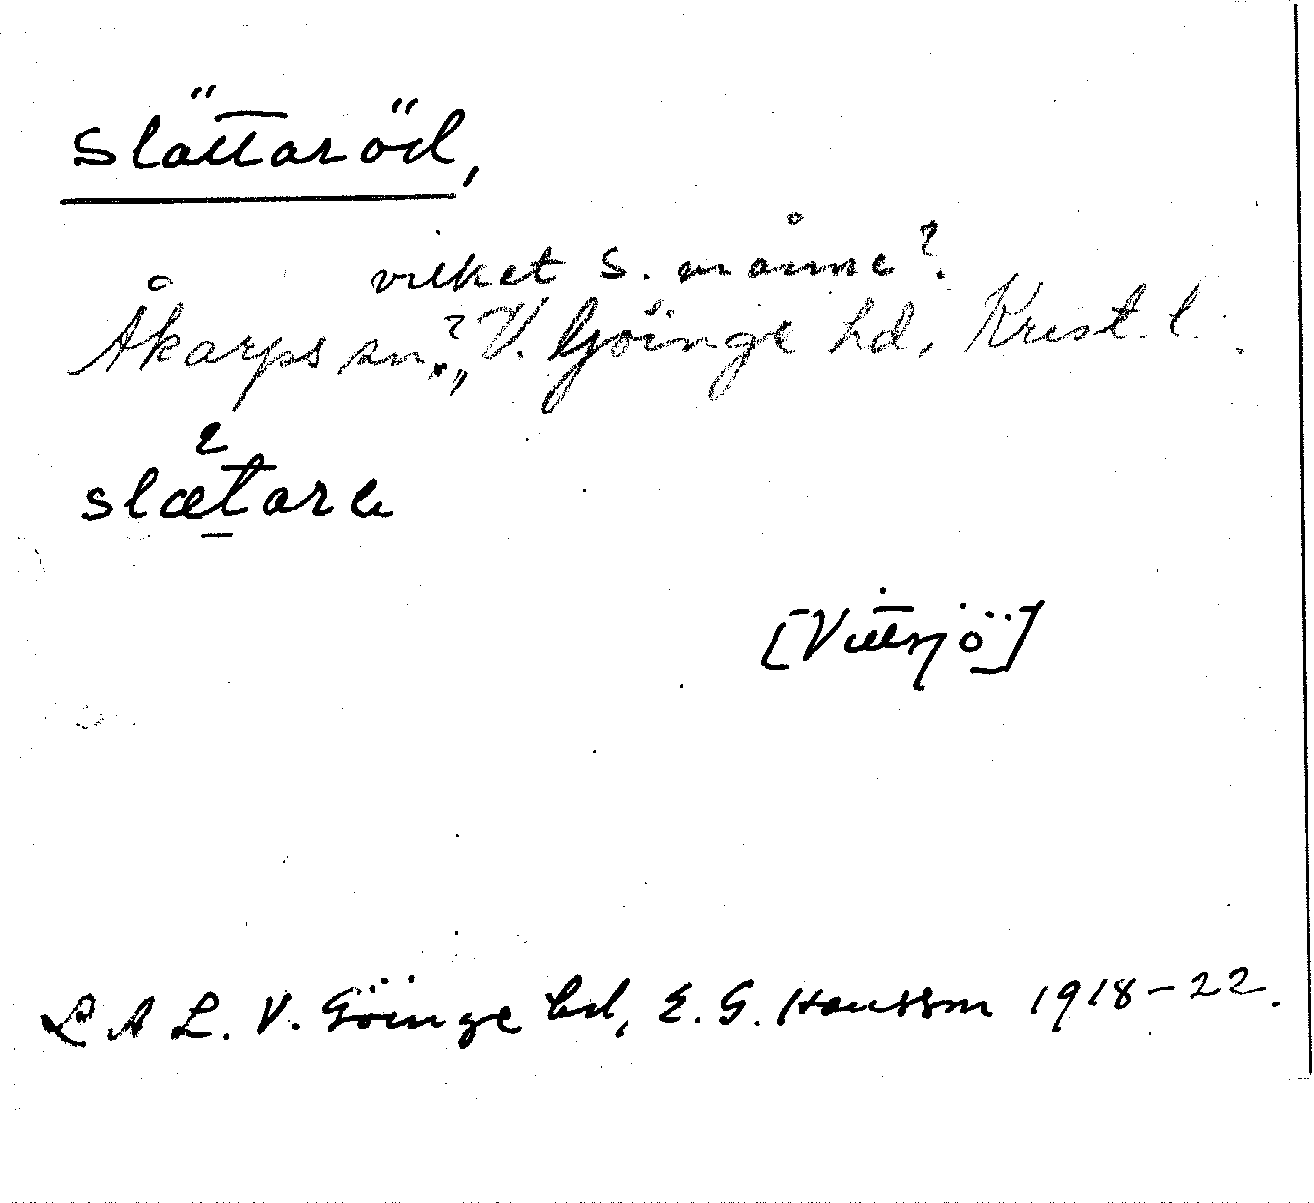 Slättaröd,
vilket S. månne?
Åkarps sn?, V. Göinge hd, Krist. l.
slætare
[Vittsjö]
L A L. V. Göinge hd, E. G. Hansson 1918-22.